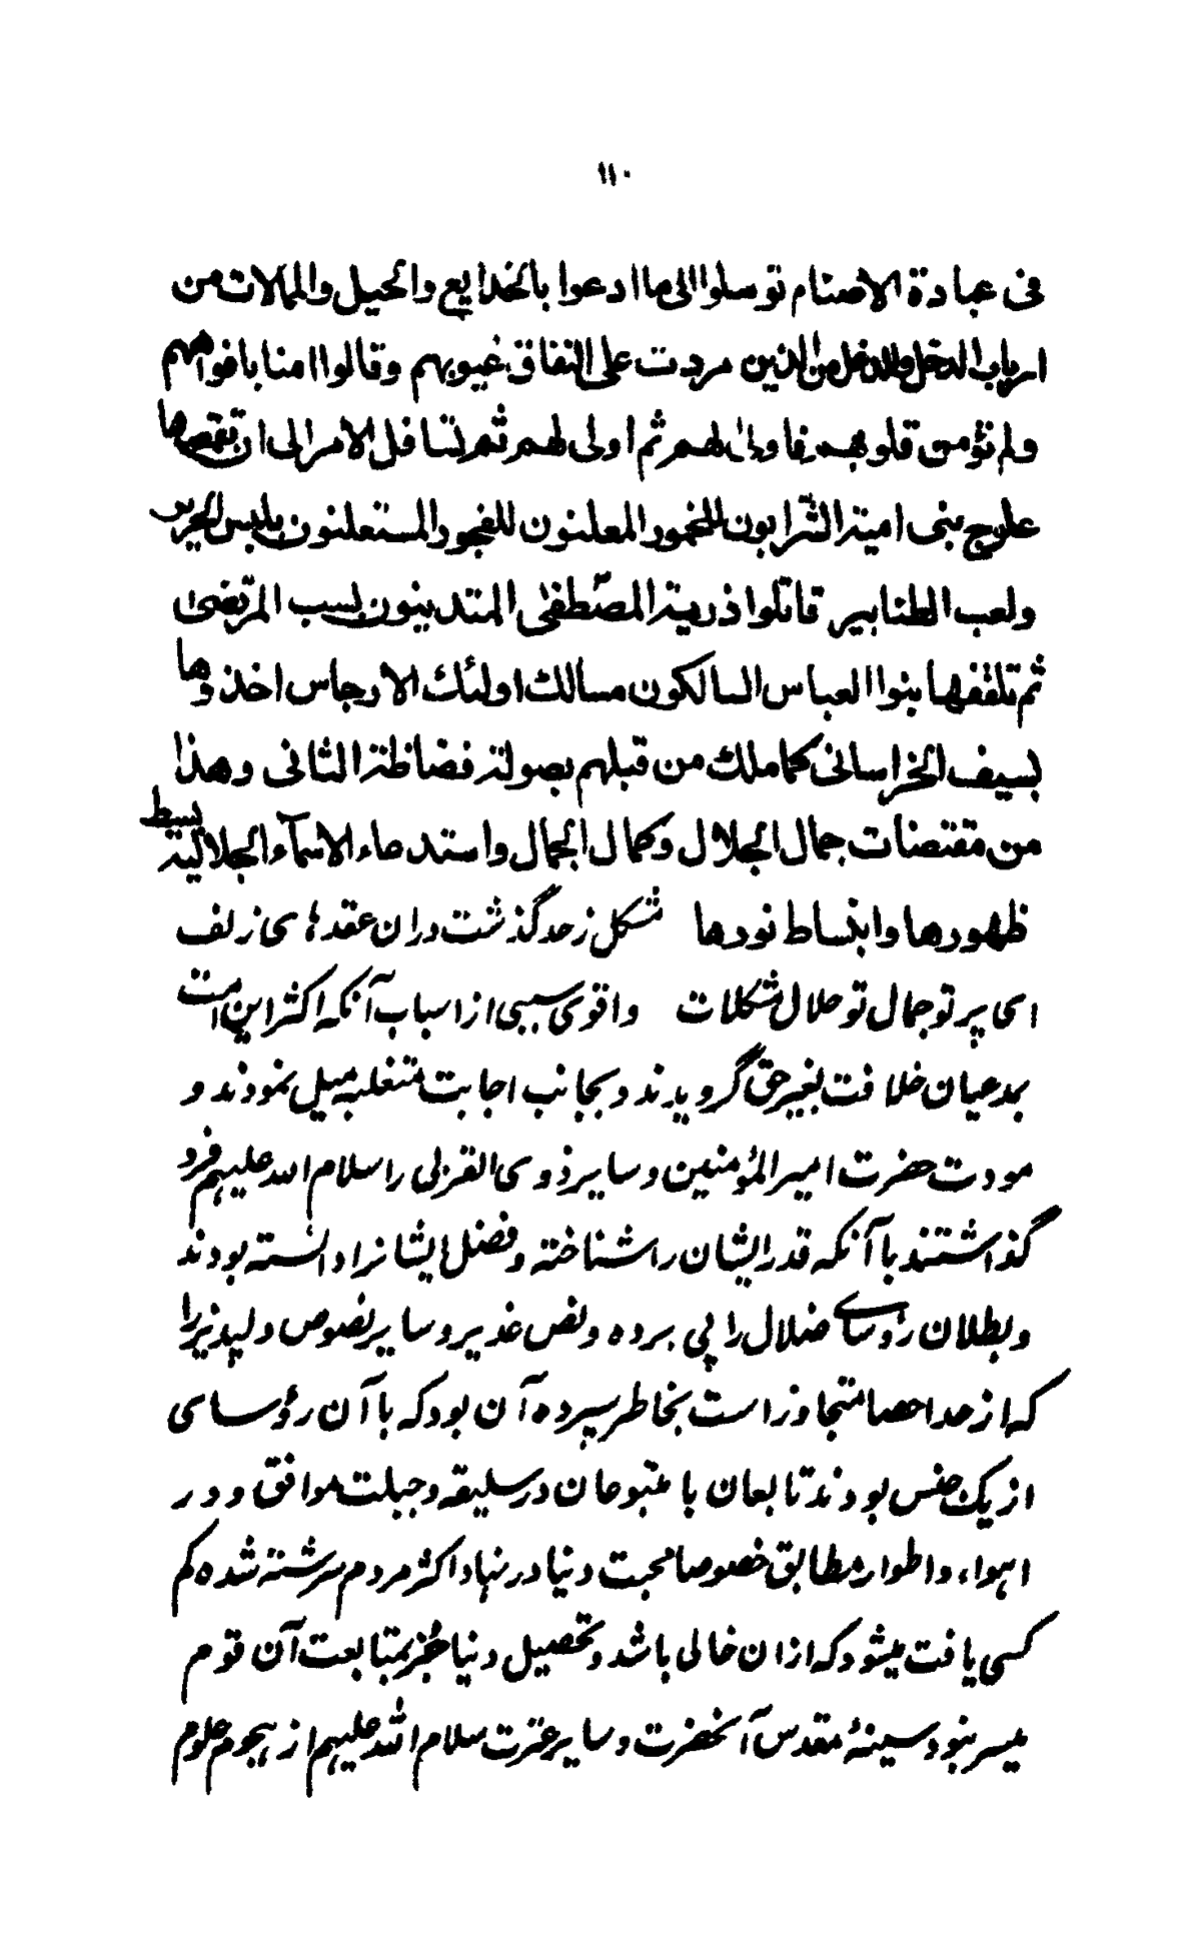 ١١٠
فى عبادة الاصنام توسلوا الى ما ادعوا بالخدايع والحيل والمالات من
ارباب الدخل والدغل من الذين مردت على النفاق غيوبهم وقالوا امنا بافواههم
ولم تؤمن قلوبهم فاولى لهم ثم اولى لهم ثم تسافل الامر الى ان تقمصها
علوج بنى امية الشرابون للخمور المعلنون للفجور المستعلنون بلبس الحرير
ولعب الطنابير قاتلوا ذرية المصطفى المتدينون بسب المرتضى
ثم تلقفها بنوا العباس السالكون مسالك اولئك الارجاس اخذوها
بسيف الخراسانى كما ملك من قبلهم بصولة فضاظة الثانى وهذا
من مقتضات جمال الجلال وكمال الجمال واستدعاء الاسمآء الجلالية بسط
ظهورها وانبساط نورها مشكل ز حد گذشت در ان عقدهاى زلف
اى پرتو جمال تو حلال مشكلات واقوى سببى از اسباب آنكه اكثر اين امت
بمدعيان خلافت بغير حق گرويدند وبجانب اجابت متغلبه ميل نمودند و
مودت حضرت امير المؤمنين وساير ذوى القربى را سلام الله عليهم فرو
گذاشتند با آنكه قدر ايشان را شناخته وفضل ايشانرا دانسته بودند
وبطلان رؤساى ضلال را پى برده ونص غدير وساير نصوص دلپذير را
كه از حد احصا متجاوز است بخاطر سپرده آن بود كه با آن رؤساى
از يك جنس بودند تابعان با متبوعان در سليقه وجبلت موافق و در
اهواء واطوار مطابق خصوصا محبت دنيا در نهاد اكثر مردم سرشته شده كم
كسى يافت ميشود كه ازان خالى باشد وتحصيل دنيا جز بمتابعت آن قوم
ميسر نبود وسينهٔ مقدس آنحضرت وساير عترت سلام الله عليهم از هجوم علوم